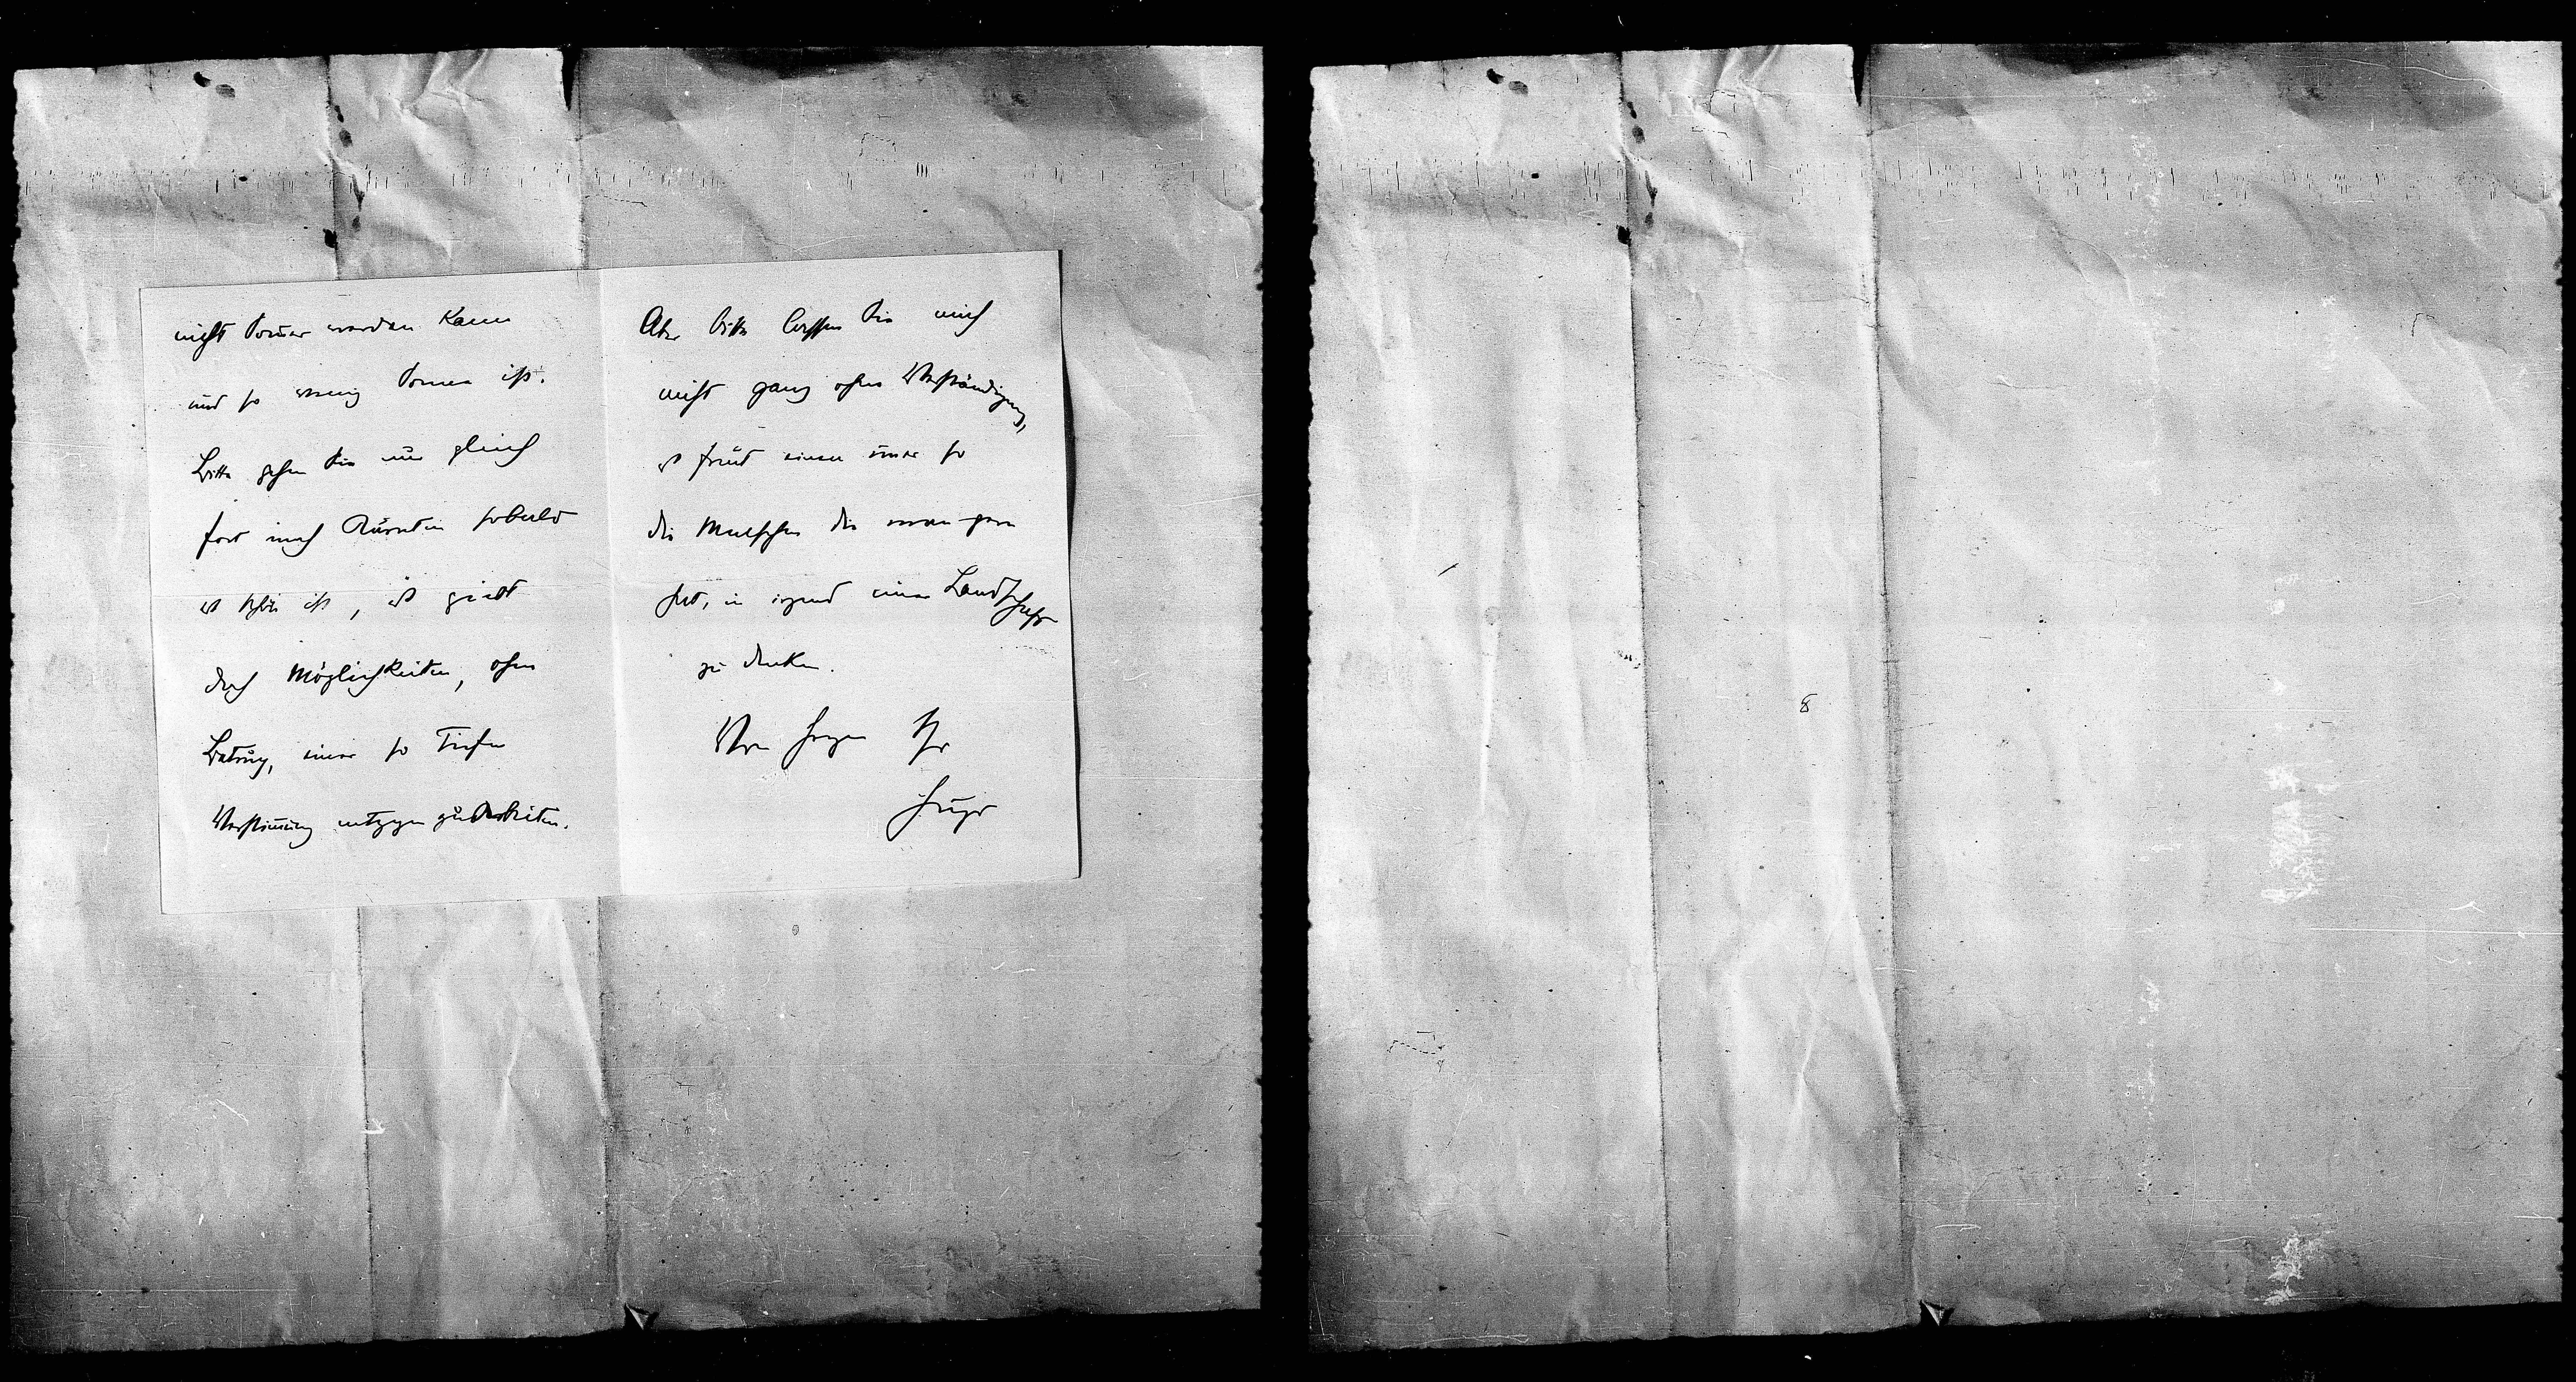 nicht Sommer werden kann
und so wenig Sonne ist.
Bitte gehen Sie nur gleich
fort nach Kärnten sobald
es schön ist, es giebt
doch Möglichkeiten, ohne
Betrug, einer so tiefen
Verstimmung entgegen zu arbeiten.
Aber bitte lassen Sie mich
nicht ganz ohne Verständigung,
es freut einen immer so
die Menschen die man gern
hat, in irgend einer Landschaft
zu denken.
Von Herzen Ihr
Hugo
8